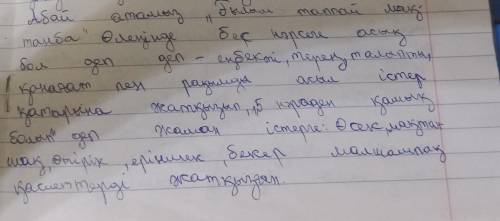 Абай атамыз "Ғылым таппай мақ
танба" Өлеңінде бес нәрсеге асық
бол деп деп - еңбекті, терең талапты,
қанағат пен рақымды асыл істер
қатарына жатқызып, 5 нәрседен қашық
болып деп жаман істерге: Өсек, мақтан
шақ, өтірік, еріншек, бекер малшашпақ
қасиеттерді жатқызған.